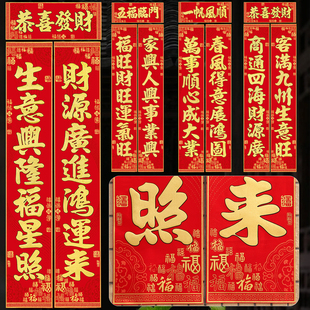 恭喜發財
財源廣進鴻運来
生意興隆福星照
五福臨門
家興人興事業興
福旺財旺運氣旺
一帆風順
春風得意展鴻圖
萬事順心成大業
恭喜發財
客滿九州生意旺
商通四海財源廣
照
来
福
福
福
福